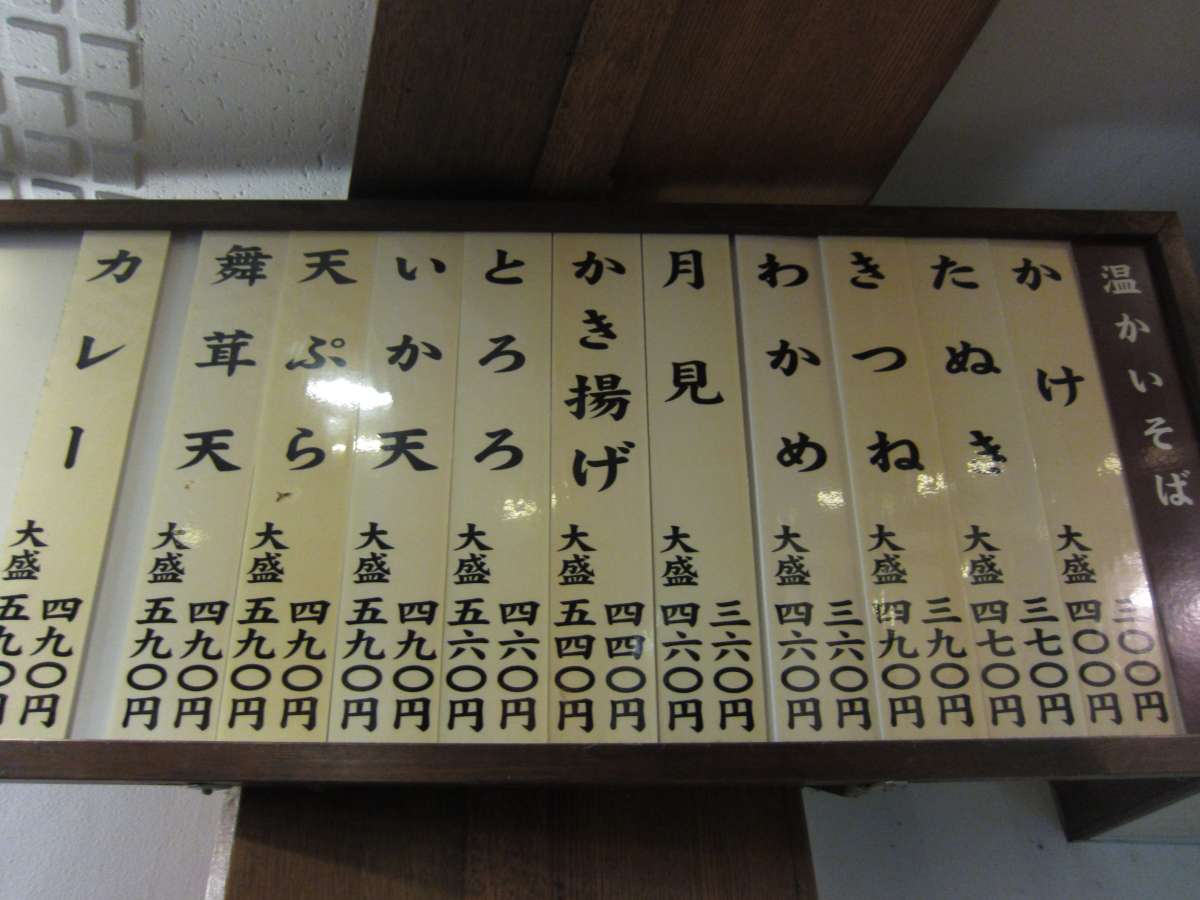 温かいそば
かけ
三〇〇円
大盛 四〇〇円
たぬき
三七〇円
大盛 四七〇円
きつね
三九〇円
大盛 四九〇円
わかめ
三六〇円
大盛 四六〇円
月見
三六〇円
大盛 四六〇円
かき揚げ
四四〇円
大盛 五四〇円
とろろ
四六〇円
大盛 五六〇円
いか天
四九〇円
大盛 五九〇円
天ぷら
四九〇円
大盛 五九〇円
舞茸天
四九〇円
大盛 五九〇円
カレー
四九〇円
大盛 五九〇円